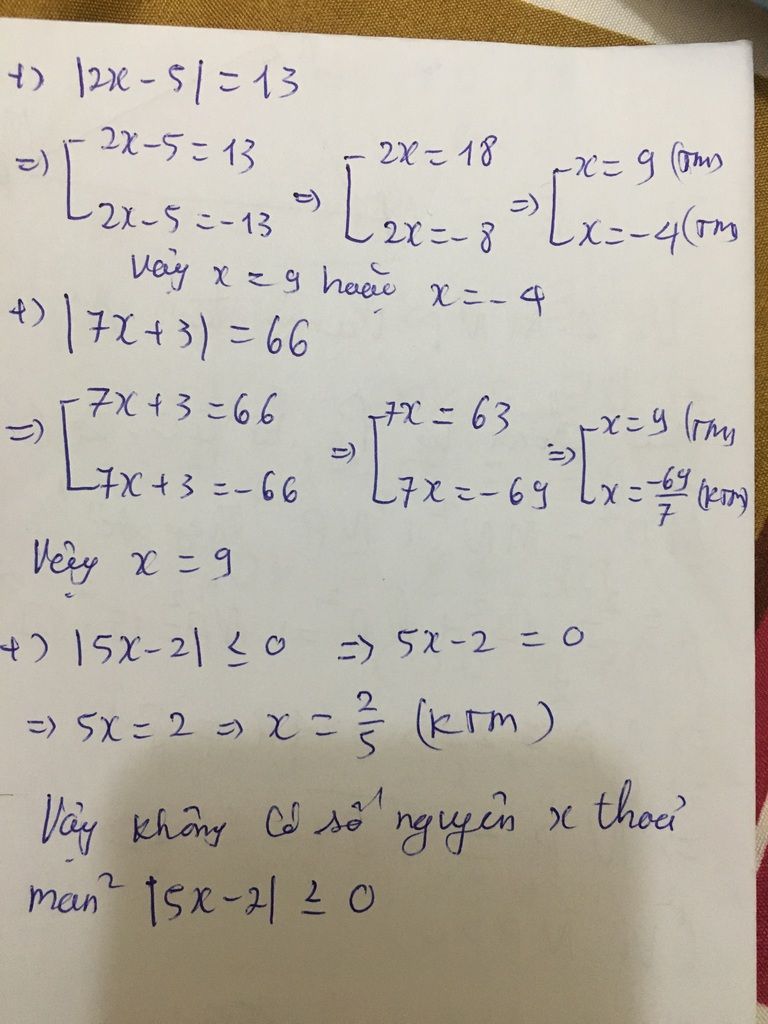 +) |2x - 5| = 13
=> [ 2x - 5 = 13 => [ 2x = 18 => [ x = 9 (TM)
2x - 5 = -13 2x = -8 x = -4 (TM)
Vậy x = 9 hoặc x = -4
+) |7x + 3| = 66
=> [ 7x + 3 = 66 => [ 7x = 63 => [ x = 9 (TM)
7x + 3 = -66 7x = -69 x = -69/7 (KTM)
Vậy x = 9
+) |5x - 2| ≤ 0 => 5x - 2 = 0
=> 5x = 2 => x = 2/5 (KTM)
Vậy không có số nguyên x thoả
mãn |5x - 2| ≤ 0